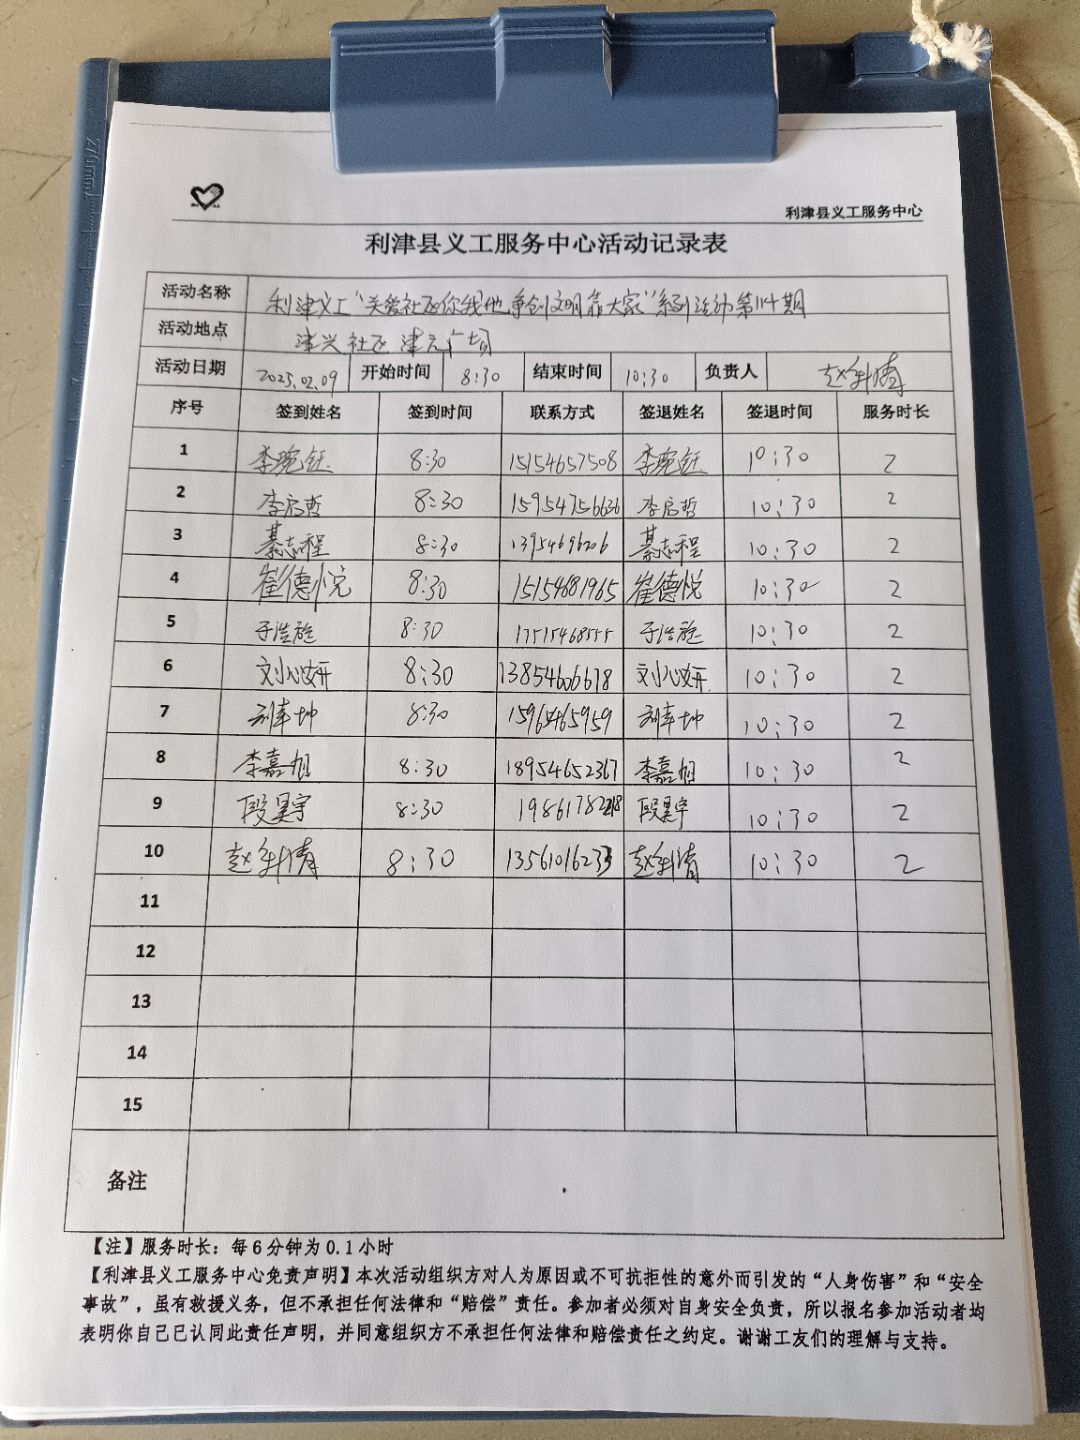 270mm
利津县义工服务中心
利津县义工服务中心活动记录表
活动名称 利津义工“关爱社区你我他争创文明靠大家”系列活动第114期
活动地点 津兴社区 津元广场
活动日期 2025.02.09 开始时间 8:30 结束时间 10:30 负责人 赵
序号 签到姓名 签到时间 联系方式 签退姓名 签退时间 服务时长
1 李琬钰 8:30 15154657508 李琬钰 10:30 2
2 李启哲 8:30 15954756636 李启哲 10:30 2
3 綦志程 8:30 13954696206 綦志程 10:30 2
4 崔德悦 8:30 15154681965 崔德悦 10:30 2
5 于浩 8:30 17515468555 于浩 10:30 2
6 刘心妍 8:30 13854606678 刘心妍 10:30 2
7 8:30 15965465959 10:30 2
8 李嘉旭 8:30 18954652367 李嘉旭 10:30 2
9 段昊宇 8:30 10:30 2
10 赵 8:30 13561016233 赵 10:30 2
11
12
13
14
15
备注
【注】服务时长：每6分钟为0.1小时
【利津县义工服务中心免责声明】本次活动组织方对人为原因或不可抗拒性的意外而引发的“人身伤害”和“安全
事故”，虽有救援义务，但不承担任何法律和“赔偿”责任。参加者必须对自身安全负责，所以报名参加活动者均
表明你自己已认同此责任声明，并同意组织方不承担任何法律和赔偿责任之约定。谢谢工友们的理解与支持。